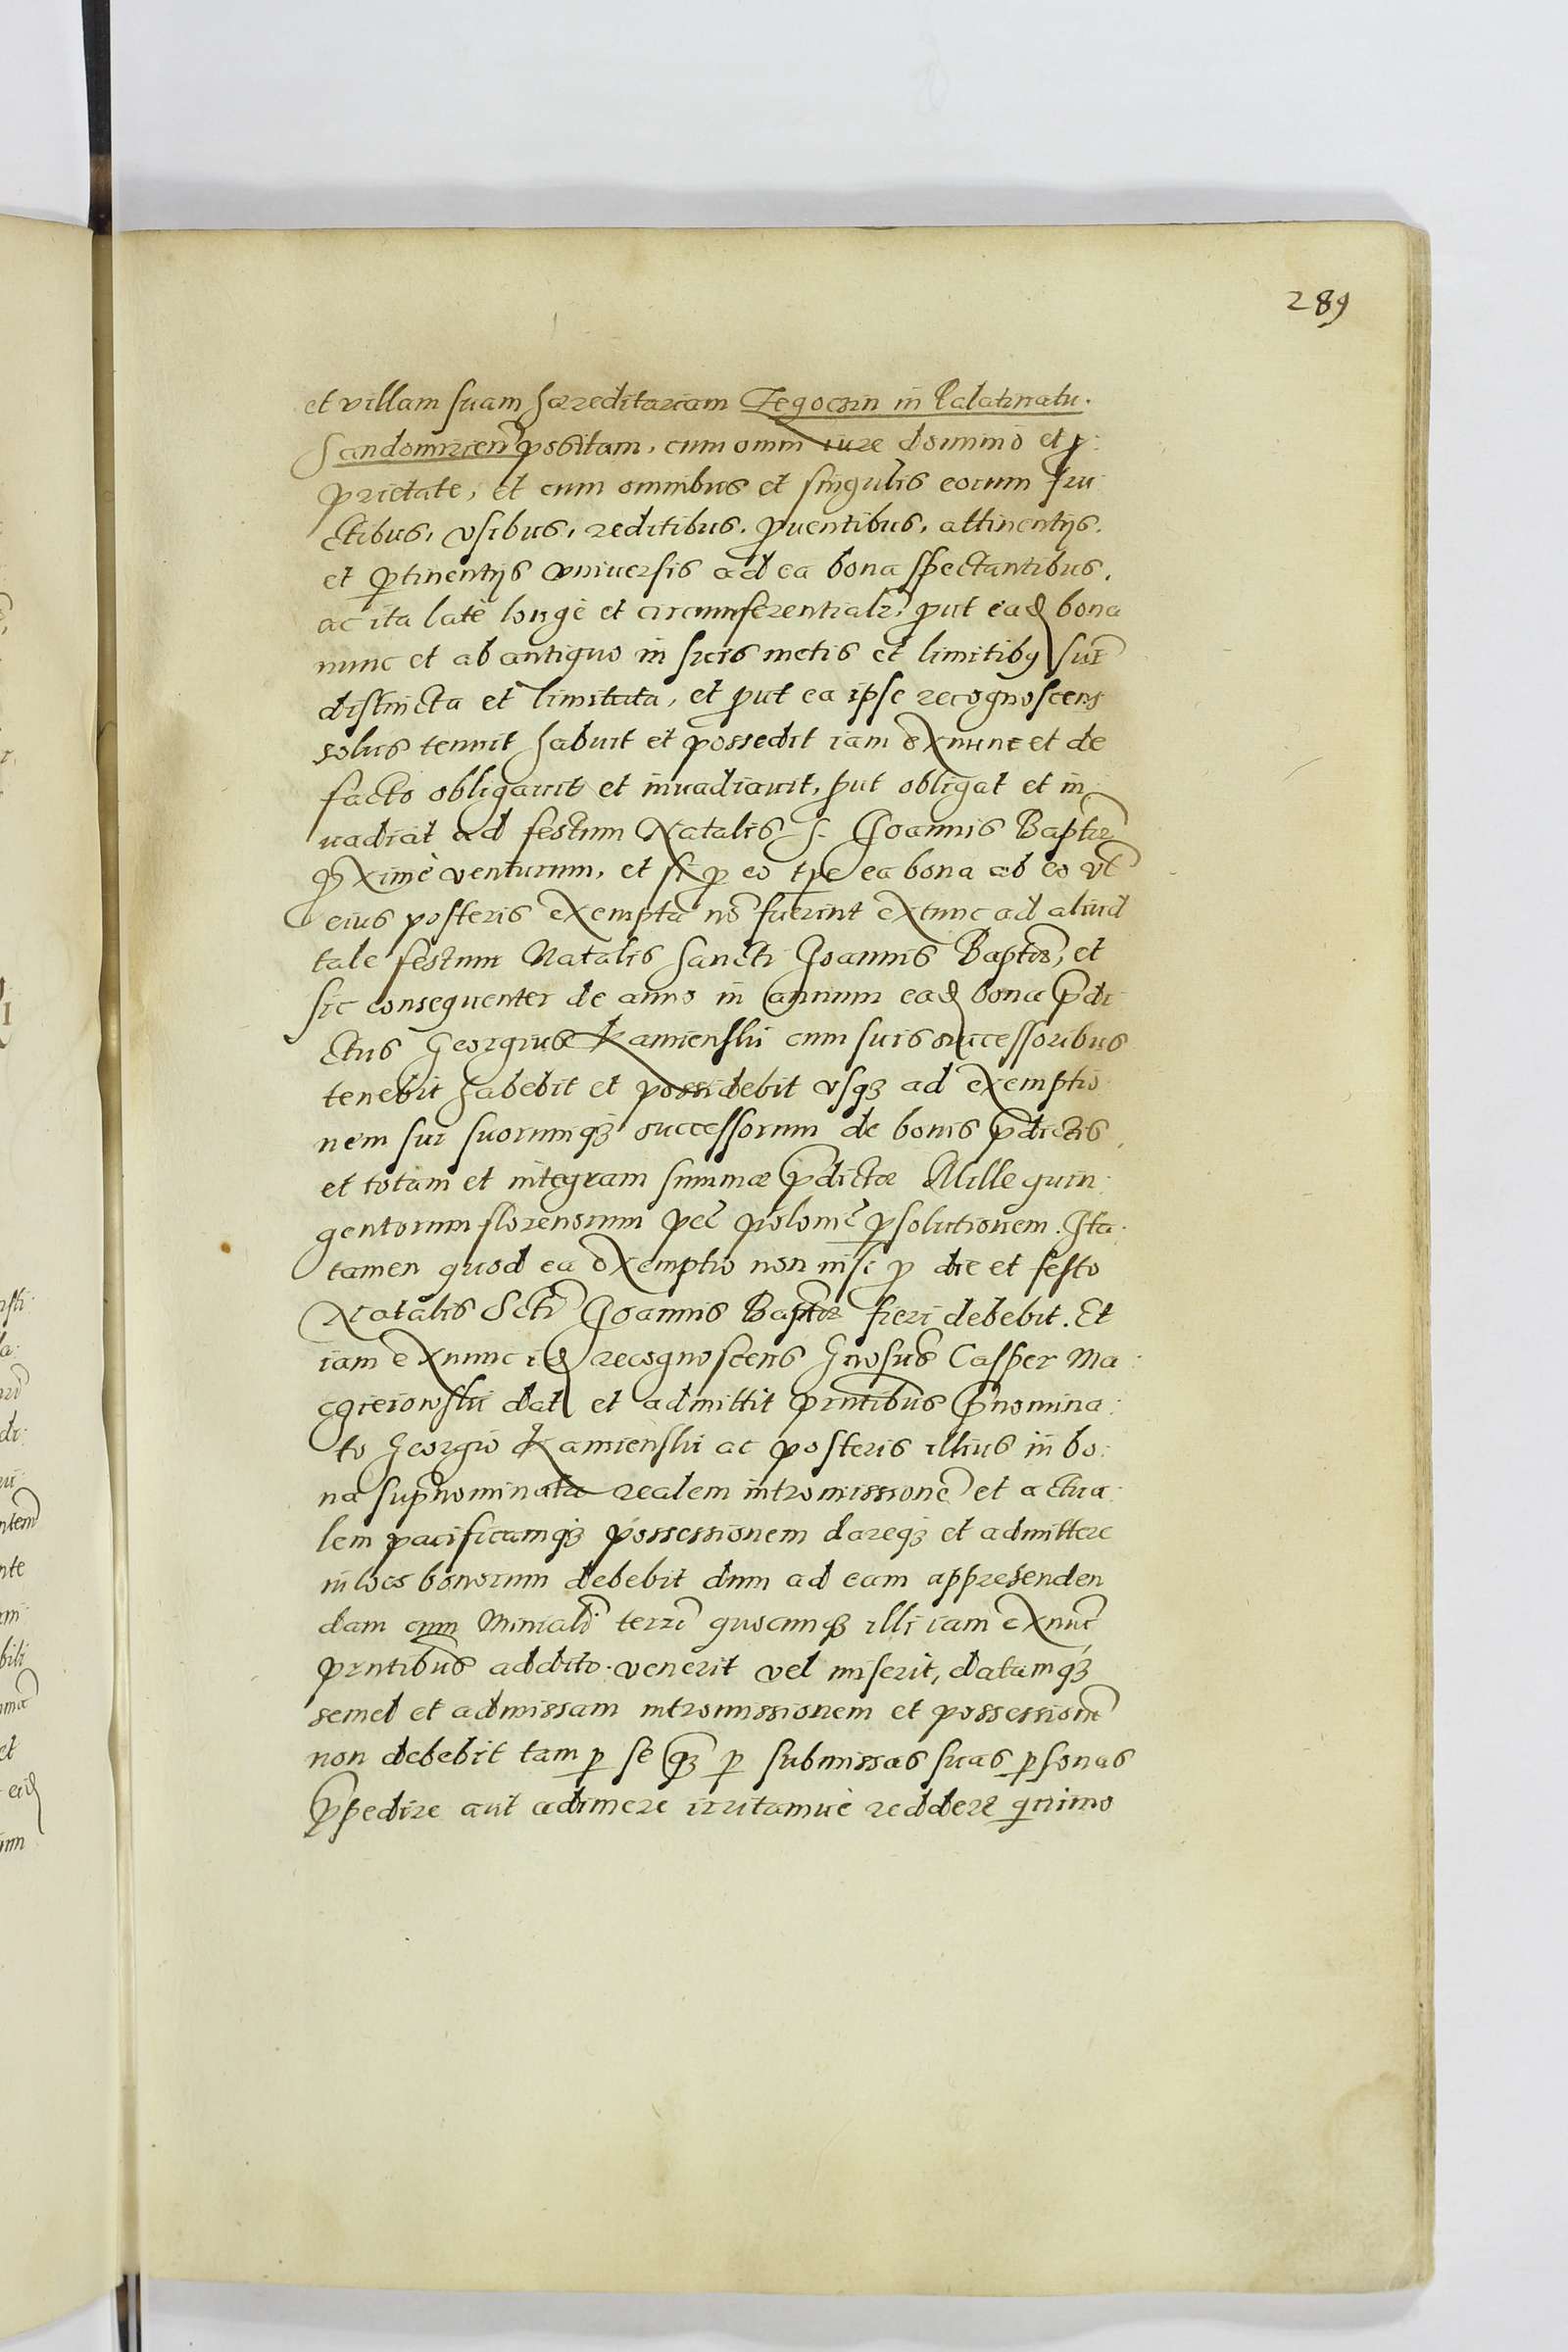 289
et villam suam hæreditariam Zegoczin in Palatinatu.
Sandomirien̄ positam, cum omni iure dominio et p̱:
prietate, et cum omnibus et singulis eorum fru
ctibus, vsibus, reditibus. ꝓuentibus, attinentijs.
et ꝑtinentijs vniuersis ad ea bona spectantibus.
ac ita latè longè et circumferentialr̃ ꝓut ead̃ bona
nunc et ab antiquo in suis metis et limitibꝰ sūt
distincta et limitata, et ꝓut ea ipse recognoscens
solus tenuit habuit et possedit iam exnunc et de
facto obligauit et inuadiauit, ꝓut obligat et in
uadiat ad festum Natalis S. Joannis Baptæ̃
ꝓximè venturum, et si ꝓ eo tp̃e ea bona ab eo vl̃
eius posteris exempta nõ fuerint extunc ad aliud
tale festum Natalis Sancti Joannis Baptæ̃, et
sic consequenter de anno in annum ead̃ bona p̃di
ctus Georgius Kamienski cum suis successoribus
tenebit habebit et possidebit vsqꝫ ad exemptio
nem sui suorumqꝫ successorum de bonis p̃dictis,
et totam et integram summæ p̃dictæ Mille quin:
gentorum florenorum pec̃ polonic̃ ꝑsolutionem. Ita
tamen quod ea exemptio non nisi ꝓ die et festo
Natalis Scti Joannis Baptæ̃ fieri debebit. Et
iam exnunc id̃ recognoscens Gnosus Casper Ma:
cgieiowski dat et admittit prñtibus p̃nomina:
to Georgio Kamienski ac posteris illius in bo:
na sup̃nominata realem intromissionẽ et actua:
lem pacificamqꝫ possessionem dareqꝫ et admittere
in loc̃s bonorum debebit dum ad eam apprehenden
dam cum Miniali terri quocunqꝫ illi iam exnũc
prñtibus addito. venerit vel miserit, datamqꝫ
semel et admissam intromissionem et possessionẽ
non debebit tam ꝑ se qꝫ ꝑ submissas suas ꝑsonas
p̃pedire aut adimere irritamuè reddere quinimo